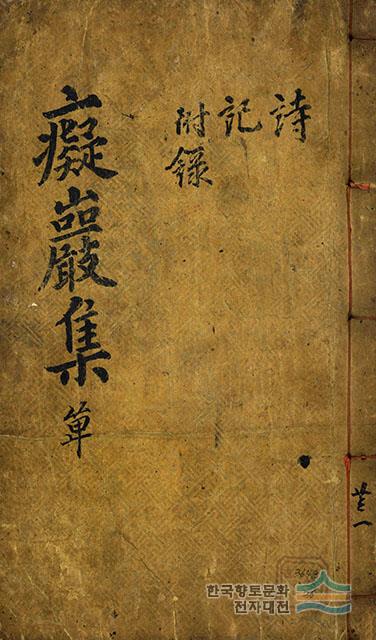 詩
記
附錄
癡巖集 單
한국향토문화
전자대전